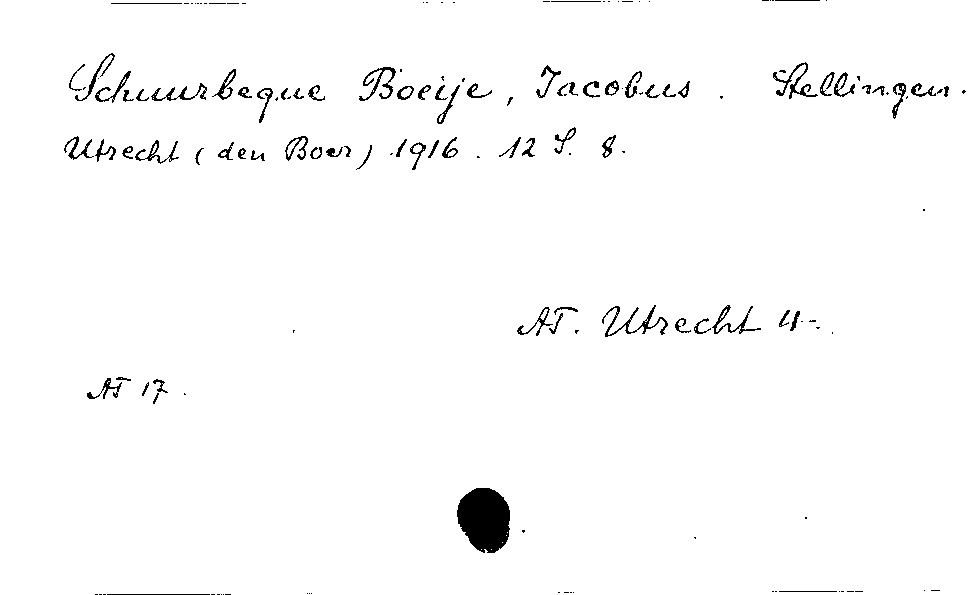 Schuurbeque Boeije, Jacobus. Stellingen.
Utrecht (den Boer) 1916. 12 S. 8.
AT. Utrecht 4-.
AT 17.